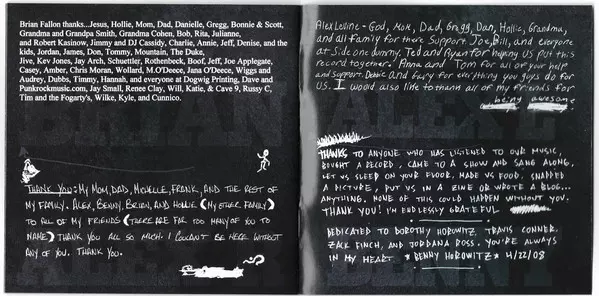 Brian Fallon thanks...Jesus, Hollie, Mom, Dad, Danielle, Gregg, Bonnie & Scott,
Grandma and Grandpa Smith, Grandma Cohen, Bob, Rita, Julianne,
and Robert Kasinow, Jimmy and DJ Cassidy, Charlie, Annie, Jeff, Denise, and the
kids, Jordan, James, Don, Tommy, Mountain, The Duke,
Jive, Kev Jones, Jay Arch, Schuettler, Rothenbeck, Boof, Jeff, Joe Applegate,
Casey, Amber, Chris Moran, Wollard, M.O'Deere, Jana O'Deere, Wiggs and
Audrey, Dubbs, Timmy, Hannah, and everyone at Dogwig Printing, Dave and
Punkrockmusic.com, Jay Small, Renee Clay, Will, Katie, & Cave 9, Russy C,
Tim and the Fogarty's, Wilke, Kyle, and Cunnico.
THANK YOU: MY MOM, DAD, MICHELLE, FRANK, AND THE REST OF
MY FAMILY. ALEX, BENNY, BRIAN, AND HOLLIE (MY OTHER FAMILY)
TO ALL OF MY FRIENDS (THERE ARE FAR TOO MANY OF YOU TO
NAME) THANK YOU ALL SO MUCH. I COULDN'T BE HERE WITHOUT
ANY OF YOU. THANK YOU.
Alex Levine - God, Mom, Dad, Gregg, Dan, Hollie, Grandma,
and all family for there support. Joe, Bill, and everyone
at Side one dummy. Ted and Ryan for helping us put this
record together. Anna and Tom for all of your help
and support. Debbie and Gary for everything you guys do for
us. I would also like to thank all of my friends for
being awesome
THANKS TO ANYONE WHO HAS LISTENED TO OUR MUSIC,
BOUGHT A RECORD, CAME TO A SHOW AND SANG ALONG,
LET US SLEEP ON YOUR FLOOR, MADE US FOOD, SNAPPED
A PICTURE, PUT US IN A ZINE OR WROTE A BLOG...
ANYTHING. NONE OF THIS COULD HAPPEN WITHOUT YOU.
THANK YOU! I'M ENDLESSLY GRATEFUL
DEDICATED TO DOROTHY HOROWITZ, TRAVIS CONNER,
ZACK FINCH, AND JORDANA ROSS. YOU'RE ALWAYS
IN MY HEART * BENNY HOROWITZ * 4/22/08